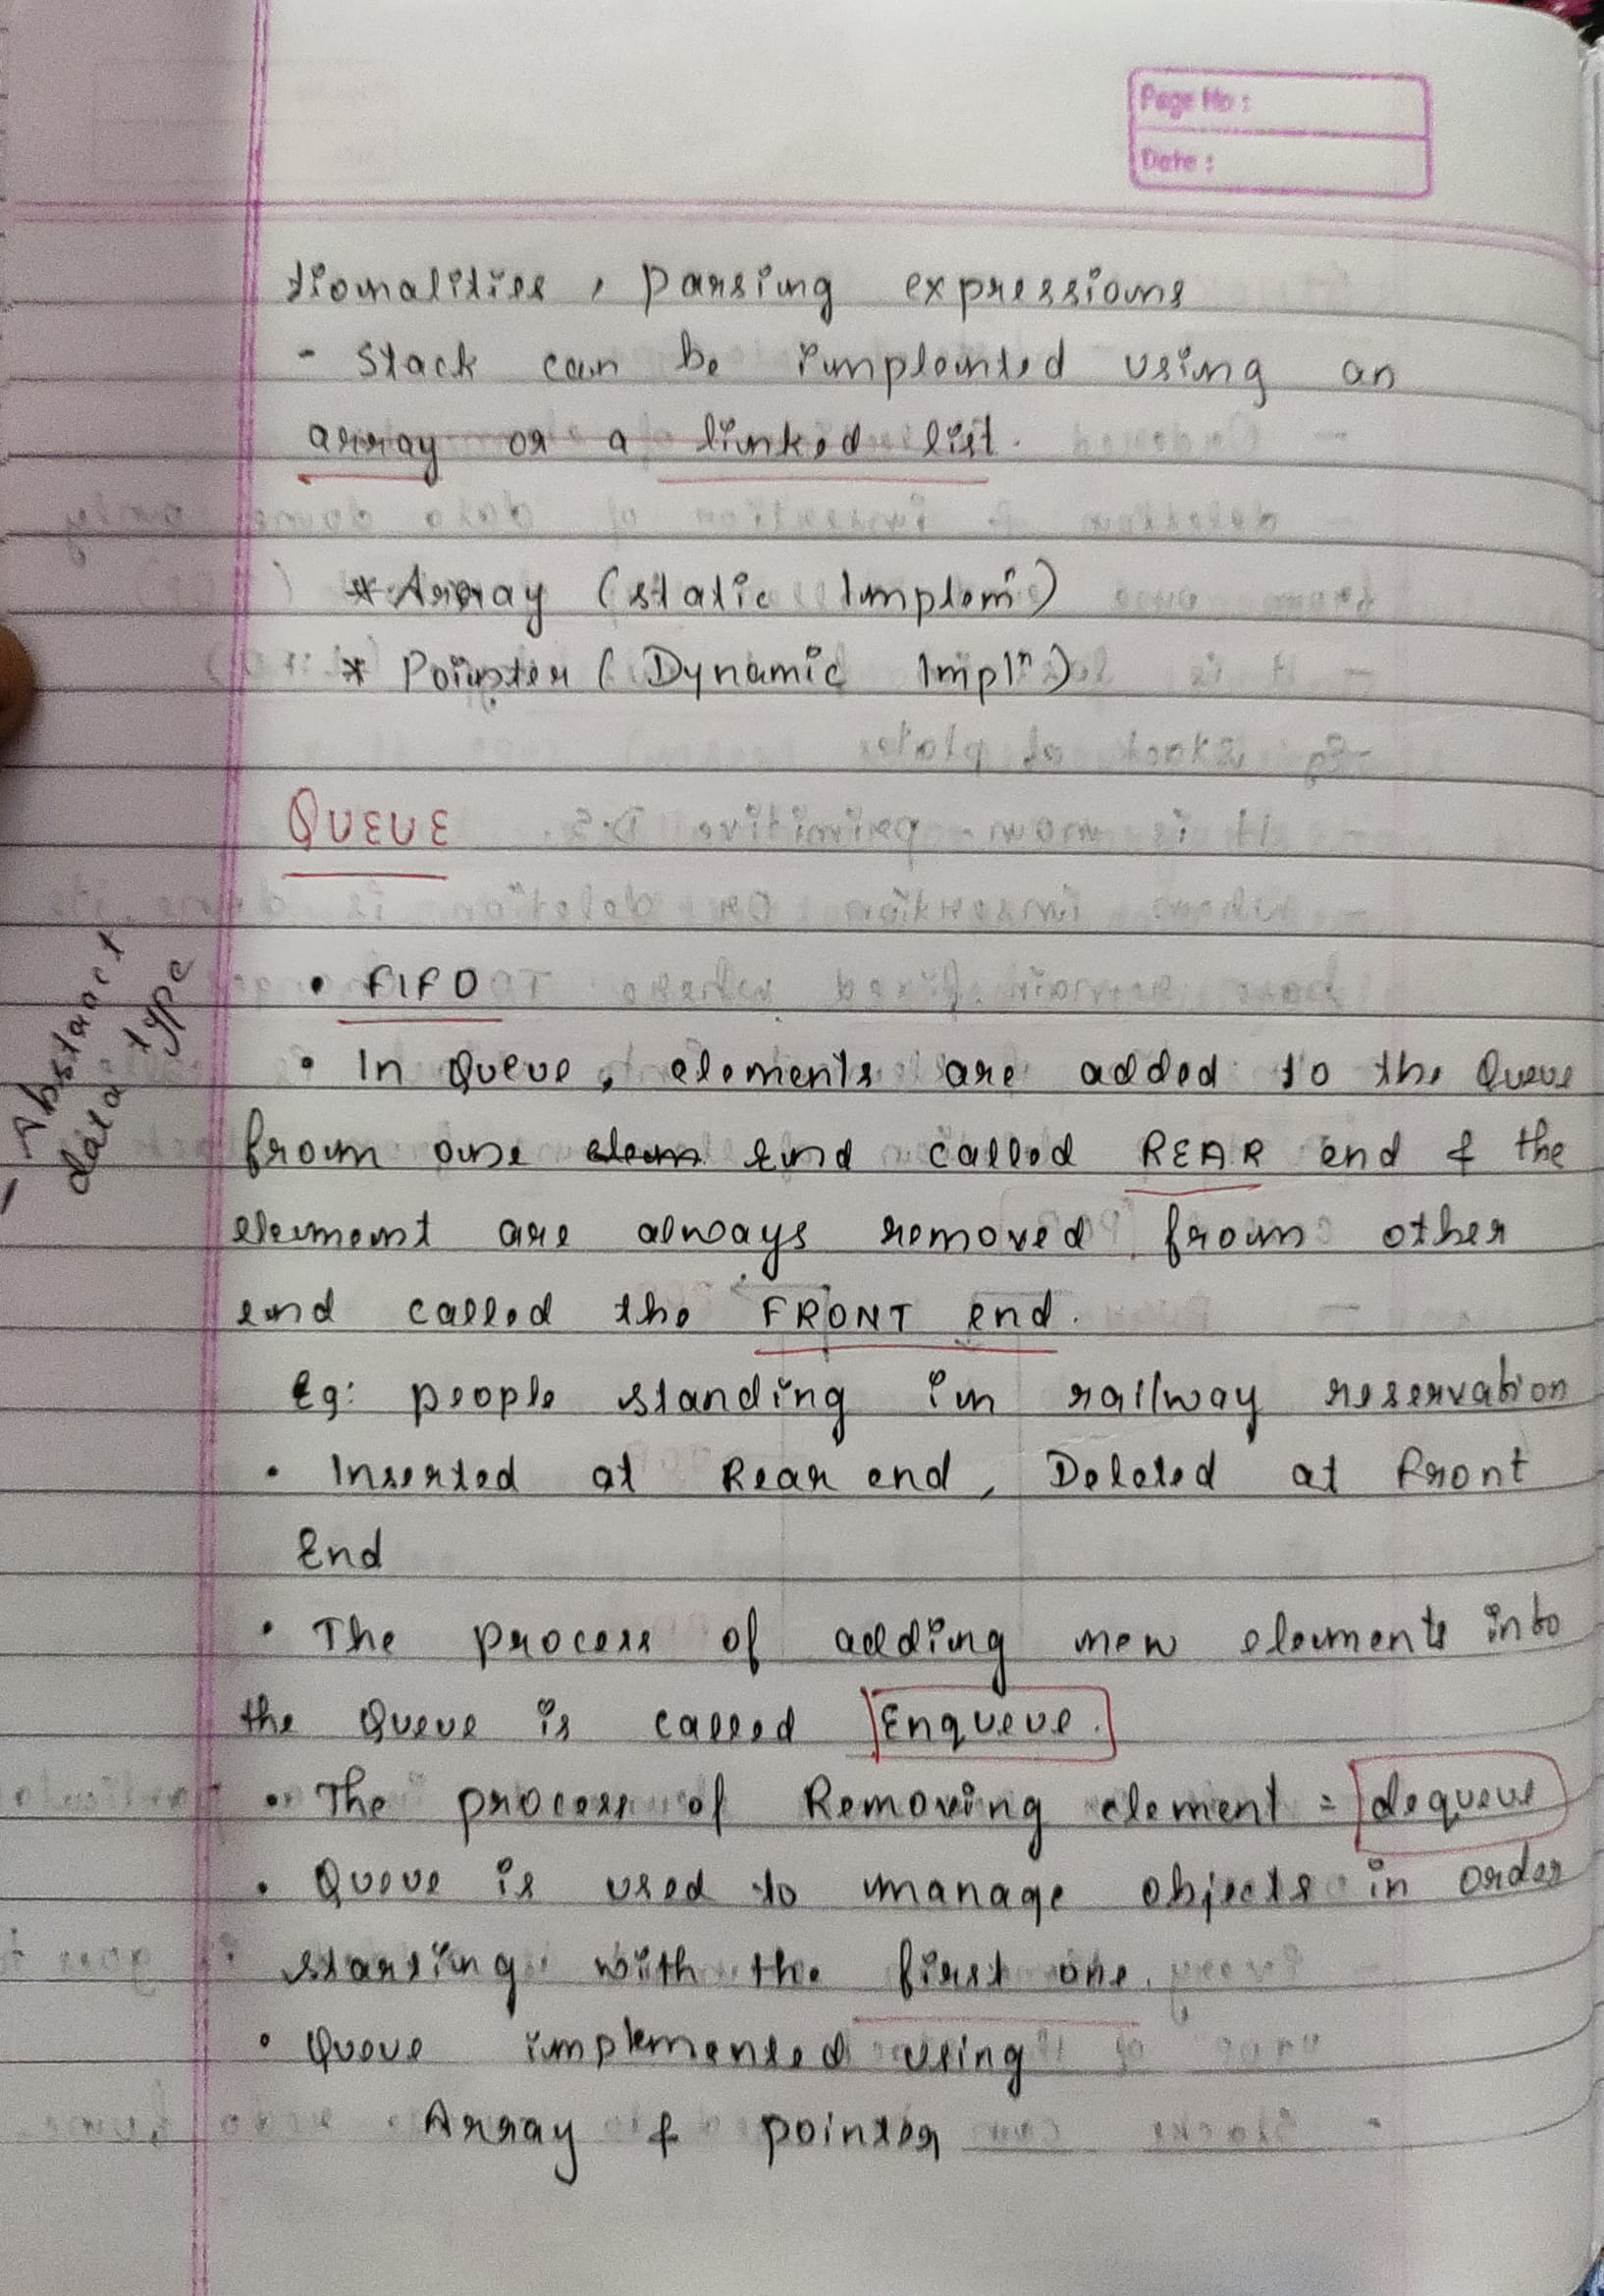 Page No :
Date :
tionalities, parsing expressions
- Stack can be implemnted using an
array or a linked list.
* Array (static Implemⁿ)
* Pointer (Dynamic Implⁿ)
QUEUE
- Abstract
data type
• FIFO
• In Queue, elements are added to the Queue
from one elem end called REAR end & the
element are always removed from other
end called the FRONT end.
Eg: people standing in railway reservation
• Inserted at Rear end, Deleted at Front
End
• The process of adding new elements into
the Queue is called Enqueue.
• The process of Removing element = dequeue
• Queue is used to manage objects in order
starting with the first one.
• Queue implemented using
Array & pointer